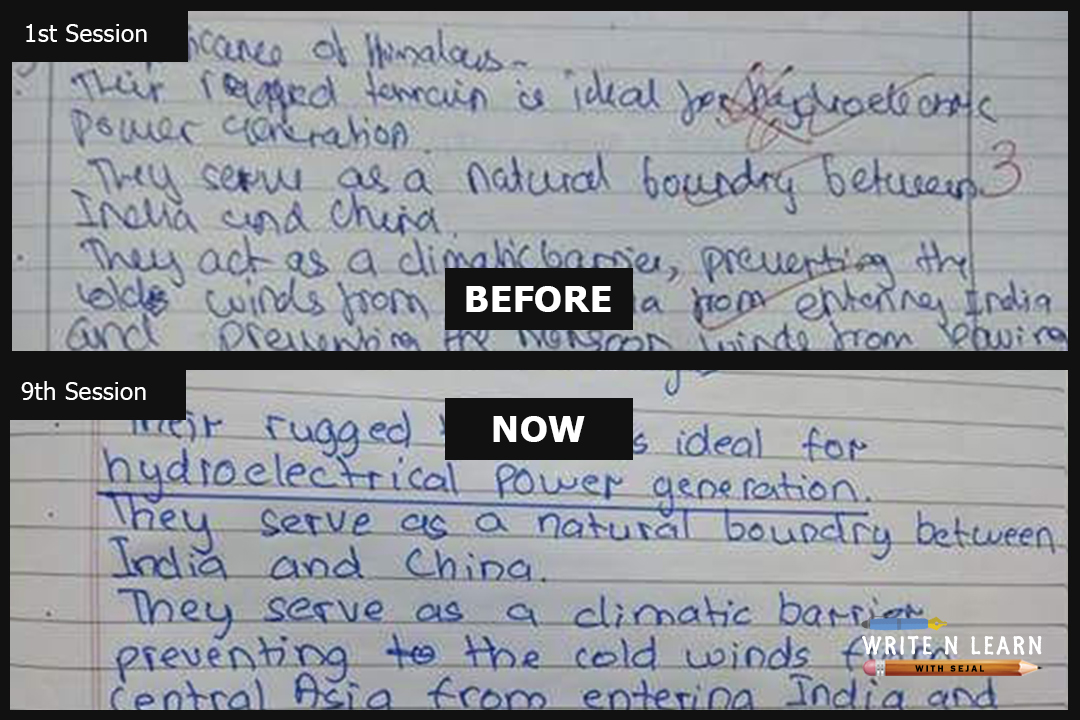 1st Session
icance of Himalays-
Their rugged terrain is ideal for hydroelectric
Power Generation.
They serve as a natural boundry between
3
India and China.
They act as a climatic barrier, preventing the
colds winds from
BEFORE
ia from entering India
and preventing the monsoon winds from leaving
9th Session
NOW
Their rugged
s ideal for
hydroelectrical Power generation.
They serve as a natural boundry between
India and China.
They serve as a climatic barrier
preventing to the cold winds from
central Asia from entering India and
WRITE N LEARN
WITH SEJAL